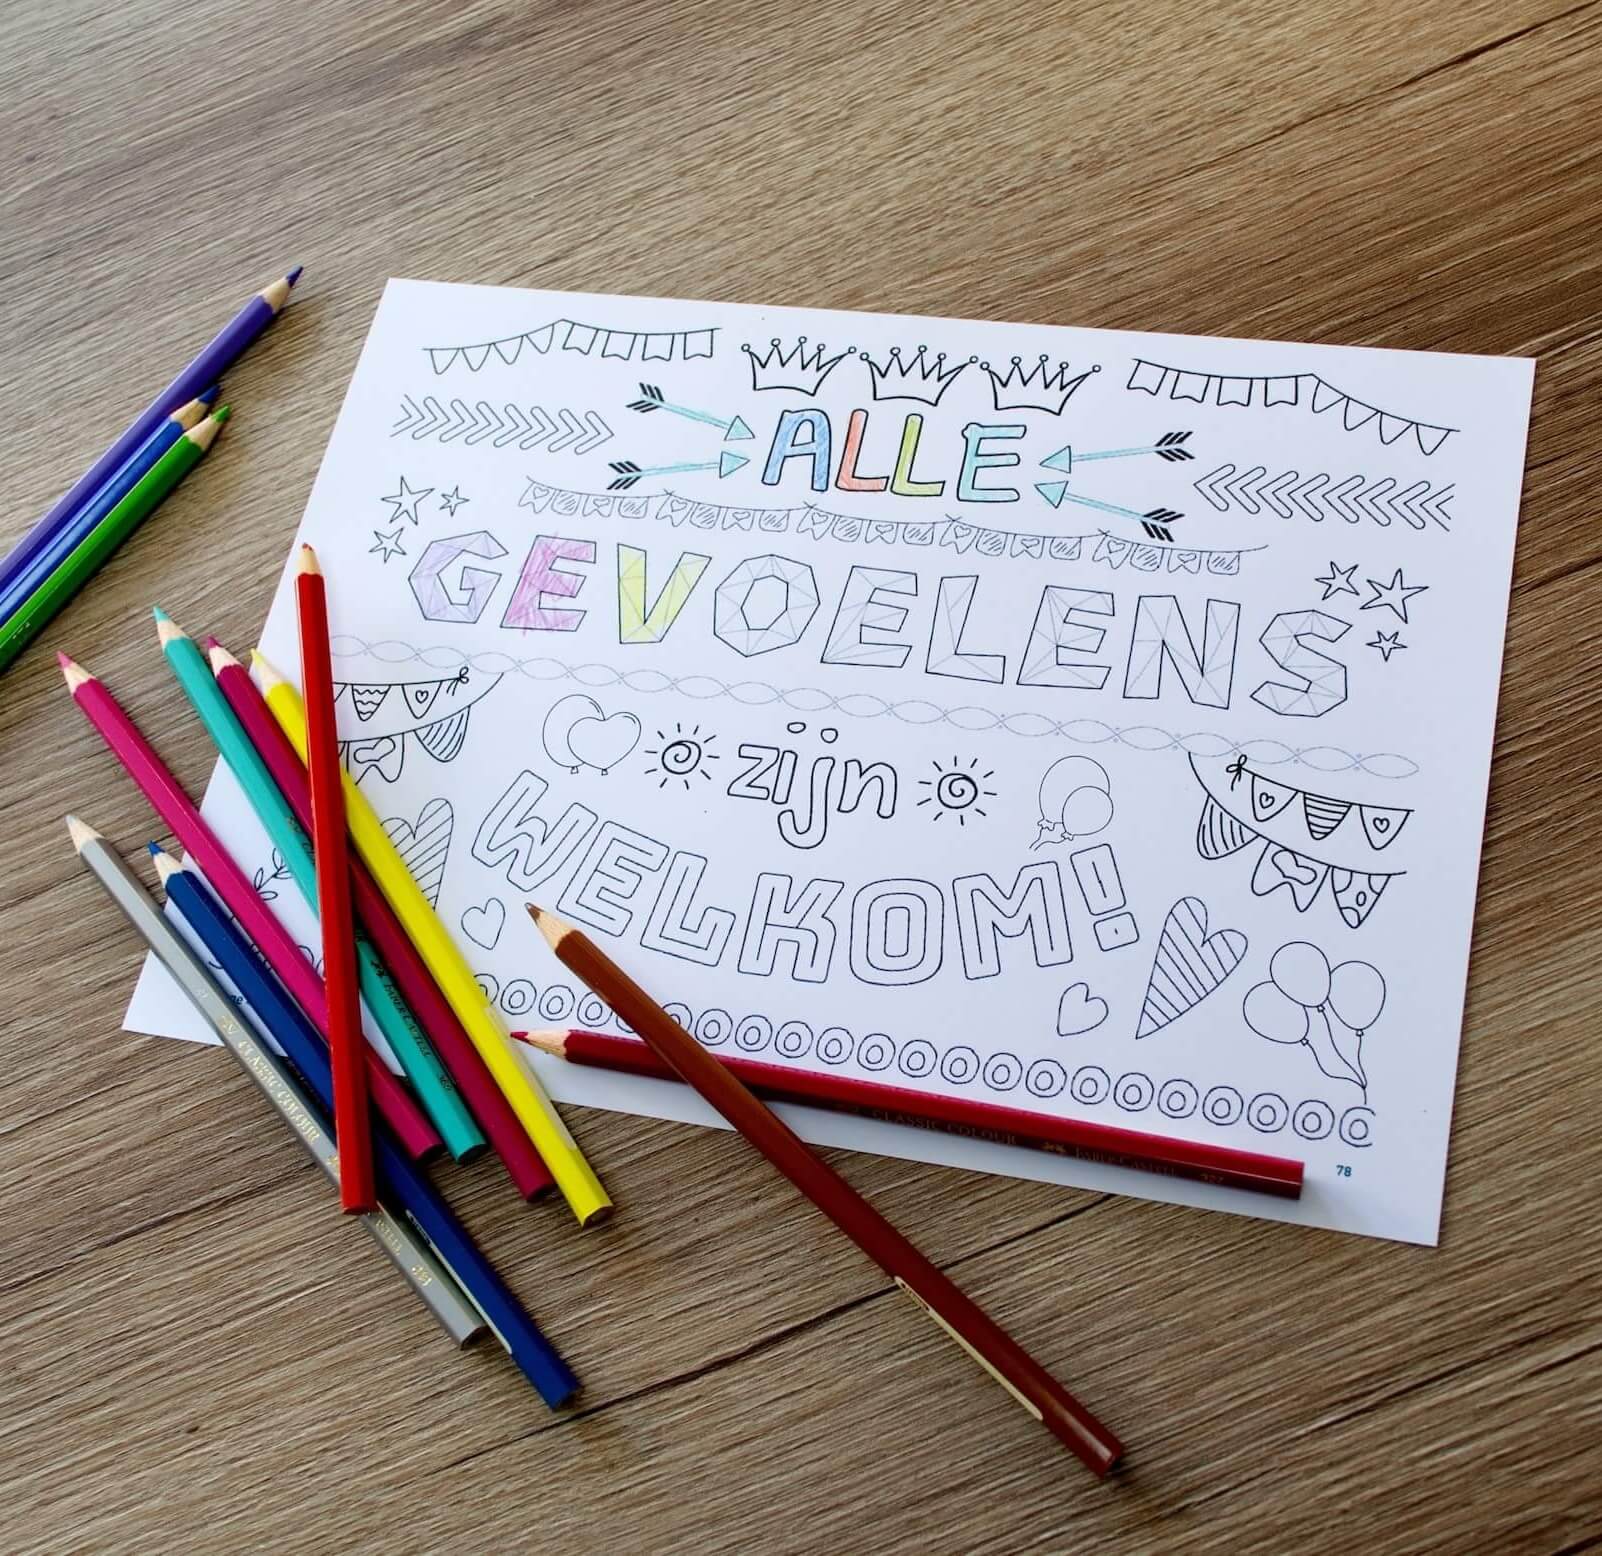 ALLE
GEVOELENS
zijn
WELKOM!
78
CLASSIC COLOUR FABER-CASTELL
CLASSIC COLOUR
FABER-CASTELL